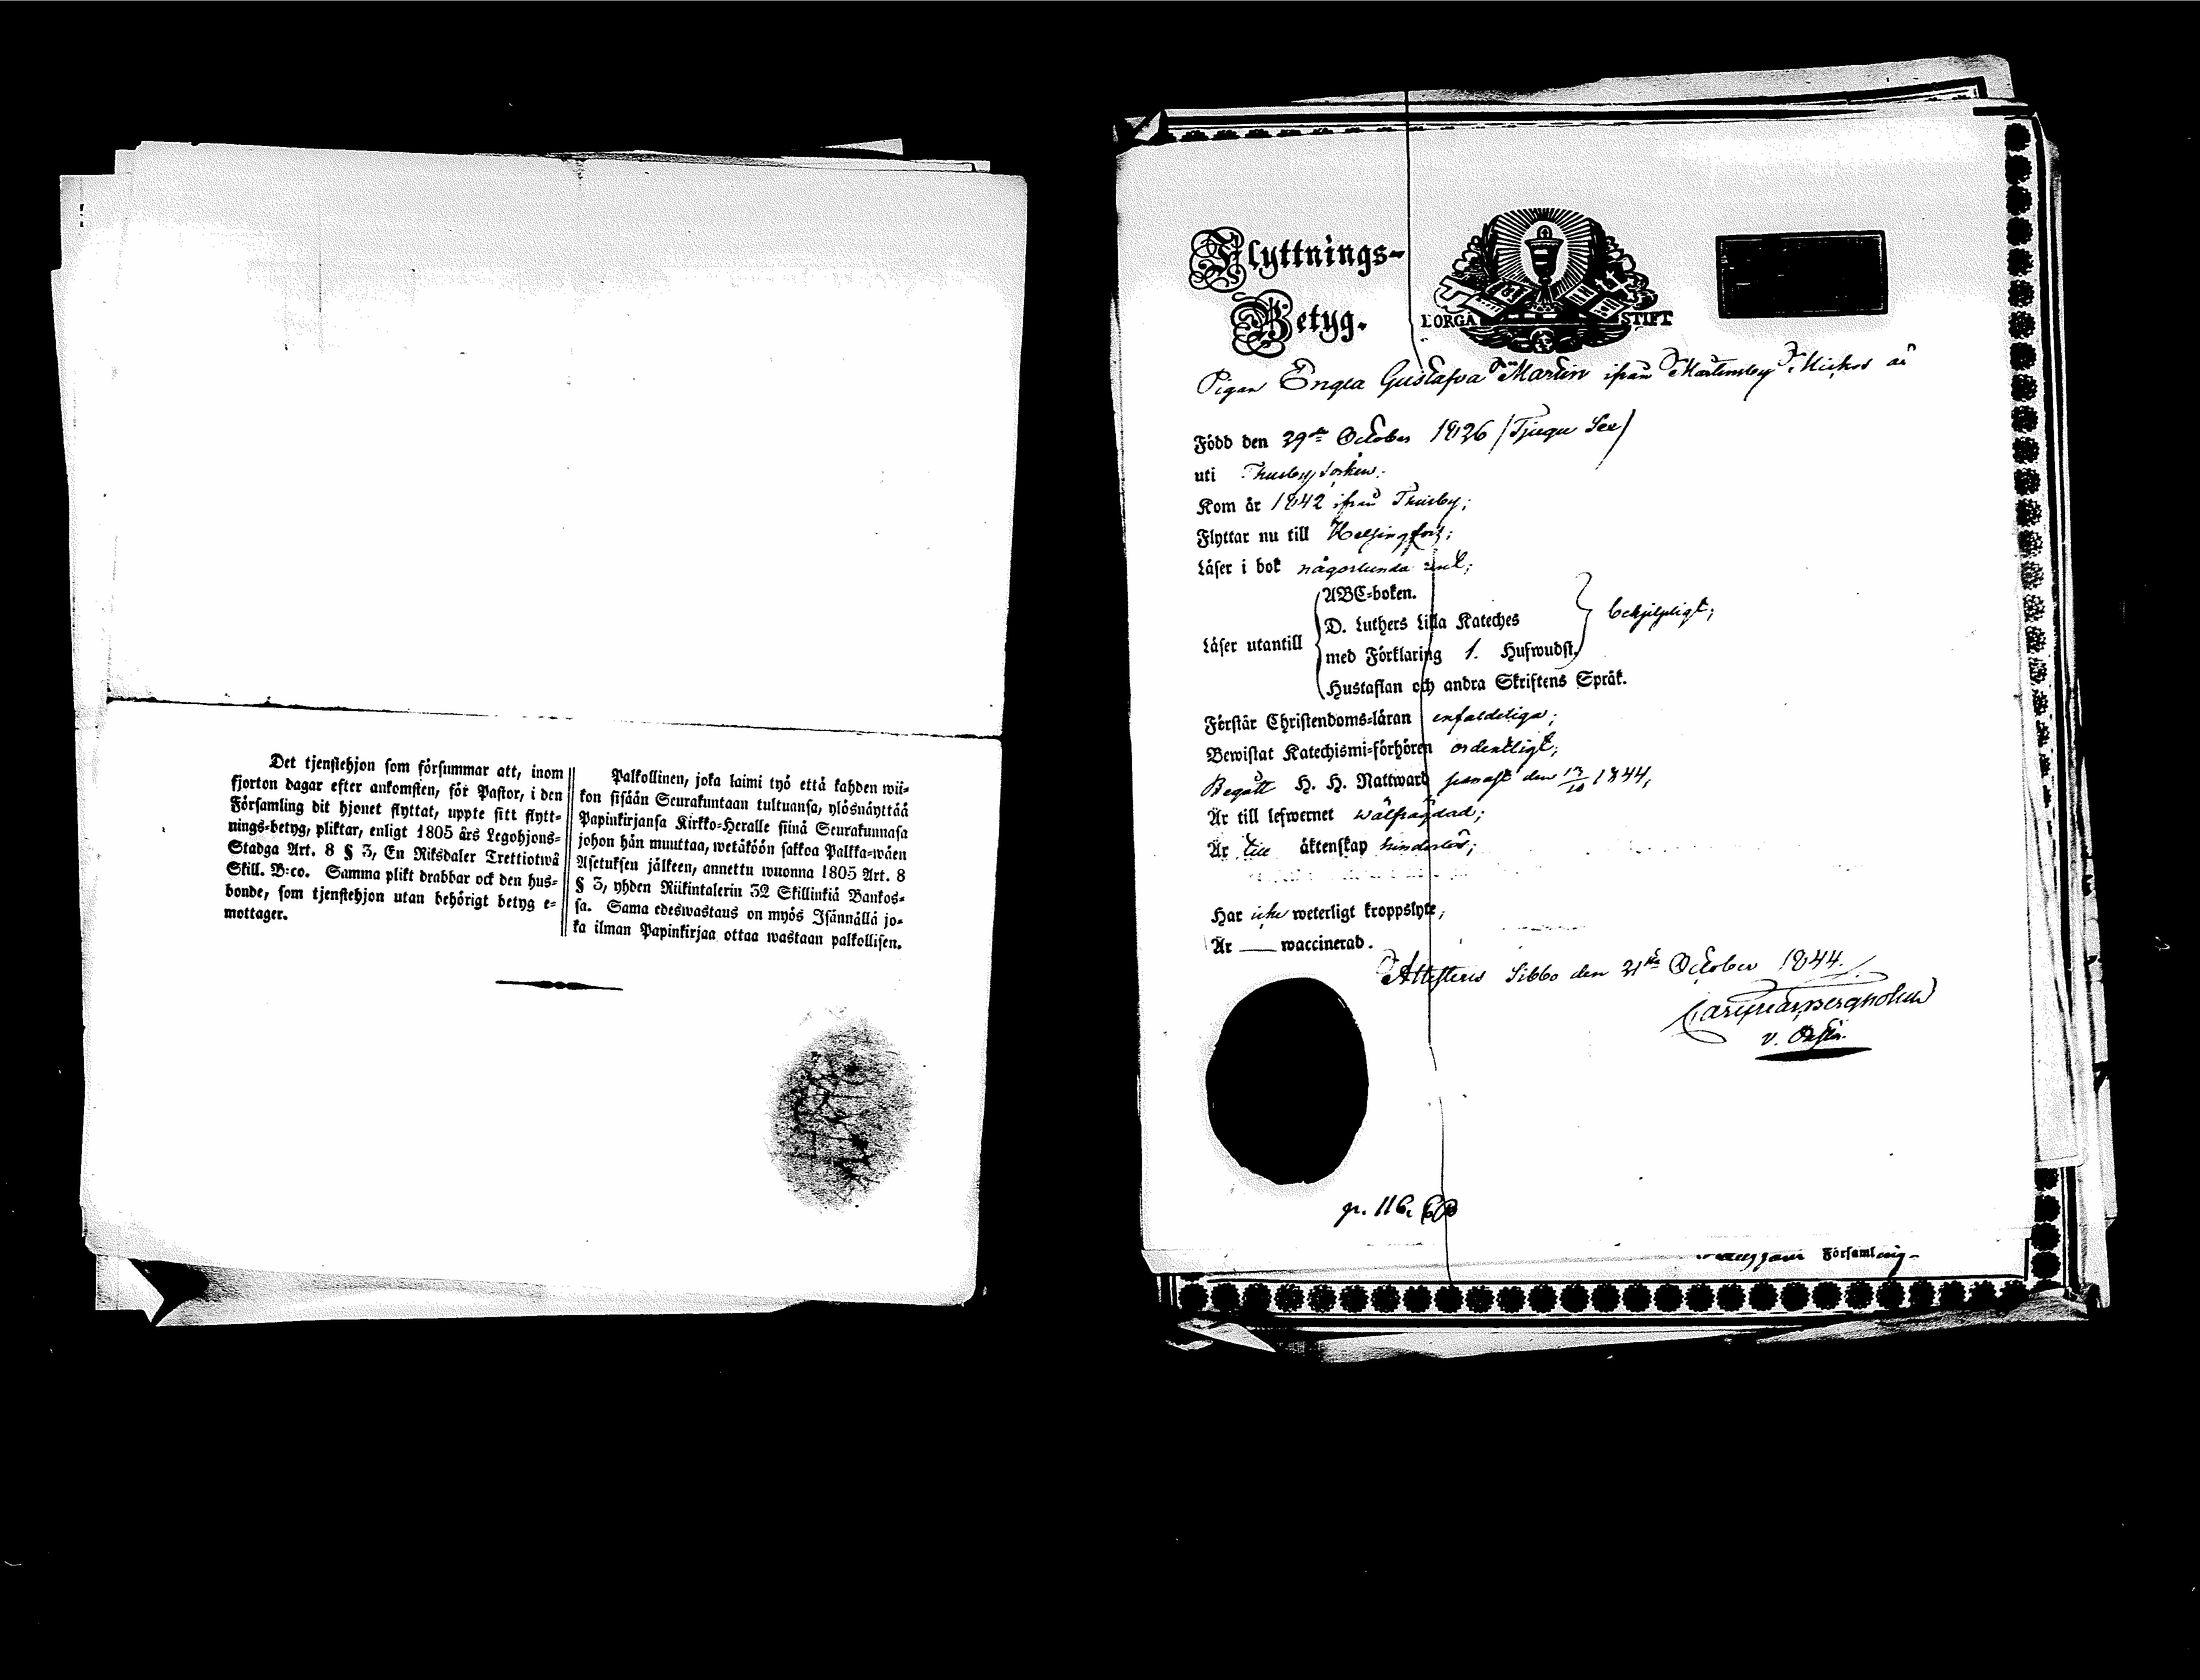 Det tjenstehjon som försummar att, inom
fjorton dagar efter ankomsten, för Pastor, i den
Församling dit hjonet flyttat, uppte sitt flytt-
nings-betyg, pliktar, enligt 1805 års Legohjons-
Stadga Art. 8 § 3, En Riksdaler Trettiotwå
Skill. B:co. Samma plikt drabbar ock den hus-
bonde, som tjenstehjon utan behörigt betyg e-
mottager.
Palkollinen, joka laimi työ että kahden wii-
kon sisään Seurakuntaan tultuansa, ylösnäyttää
Papinkirjansa Kirkko-Heralle siinä Seurakunnasa
johon hän muuttaa, wetäköön sakkoa Palkka-wäen
Asetuksen jälkeen, annettu wuonna 1805 Art. 8
§ 3, yhden Riikintalerin 32 Skillinkiä Bankos-
sa. Sama edeswastaus on myös Isännällä jo-
ka ilman Papinkirjaa ottaa wastaan palkollisen.
Flyttnings-
Betyg.
BORGÅ STIFT
Pigan Engla Gustafva Martin ifrån Mårtensby Mickos är
Född den 29de October 1826 (Tjugu Sex)
uti Thusby Socken.
Kom år 1842 ifrån Thusby;
Flyttar nu till Helsingfors;
Läser i bok någorlunda rent;
Läser utantill
ABC-boken.
D. Luthers Lilla Kateches
med Förklaring 1. Hufwudst.
behjelpligt;
Hustaflan och andra Skriftens Språk.
Förstår Christendoms-läran enfaldeliga;
Bewistat Katechismi-förhören ordentligt;
Begått H. H. Nattward senast den 13/10 1844;
Är till lefwernet wälfrägdad;
Är till äktenskap hinderlös;
Har icke weterligt kroppslyte;
Är — waccinerad.
Attesteras Sibbo den 31sta October 1844.
p. 116.
Församling